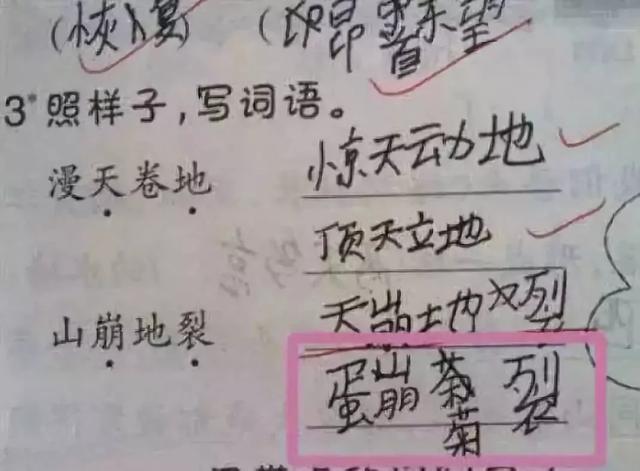 (恢复) (昂首东望
3 照样子,写词语。
漫天卷地 惊天动地
顶天立地
山崩地裂 天崩地裂
蛋崩菊裂